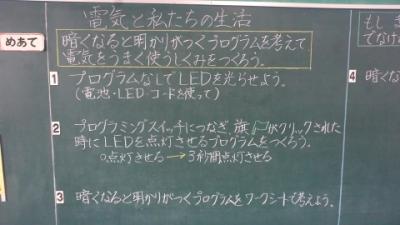 電気と私たちの生活
めあて
暗くなると明かりがつくプログラムを考えて
電気をうまく使うしくみをつくろう。
1 プログラムなしでLEDを光らせよう。
(電池・LED・コードを使って)
2 プログラミングスイッチにつなぎ、旗がクリックされた
時にLEDを点灯させるプログラムをつくろう。
点灯させる→3秒間点灯させる
3 暗くなると明かりがつくプログラムをワークシートで考えよう。
もし
でなけ
4 暗く